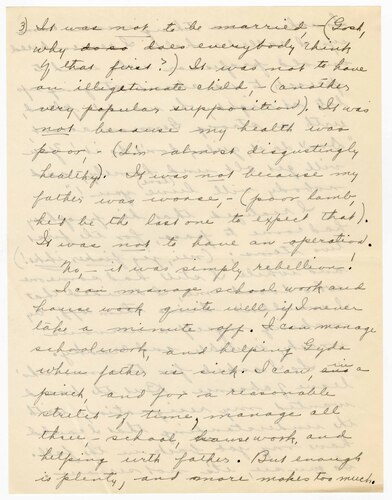 3) It was not to be married, - (Gosh,
why do so does everybody think
of that first?) It was not to have
an illegitimate child, - (another
very popular supposition). It was
not because my health was
poor - (I'm almost disgustingly
healthy). It was not because my
father was worse, - (poor lamb,
he'd be the last one to expect that).
It was not to have an operation.
No, - it was simply rebellion!
I can manage school work and
house work quite well if I never
take a minute off. I can manage
schoolwork, and helping Gyda
when father is sick. I can, in a
pinch, and for a reasonable
stretch of time, manage all
three, - school, housework, and
helping with father. But enough
is plenty, and more makes too much.